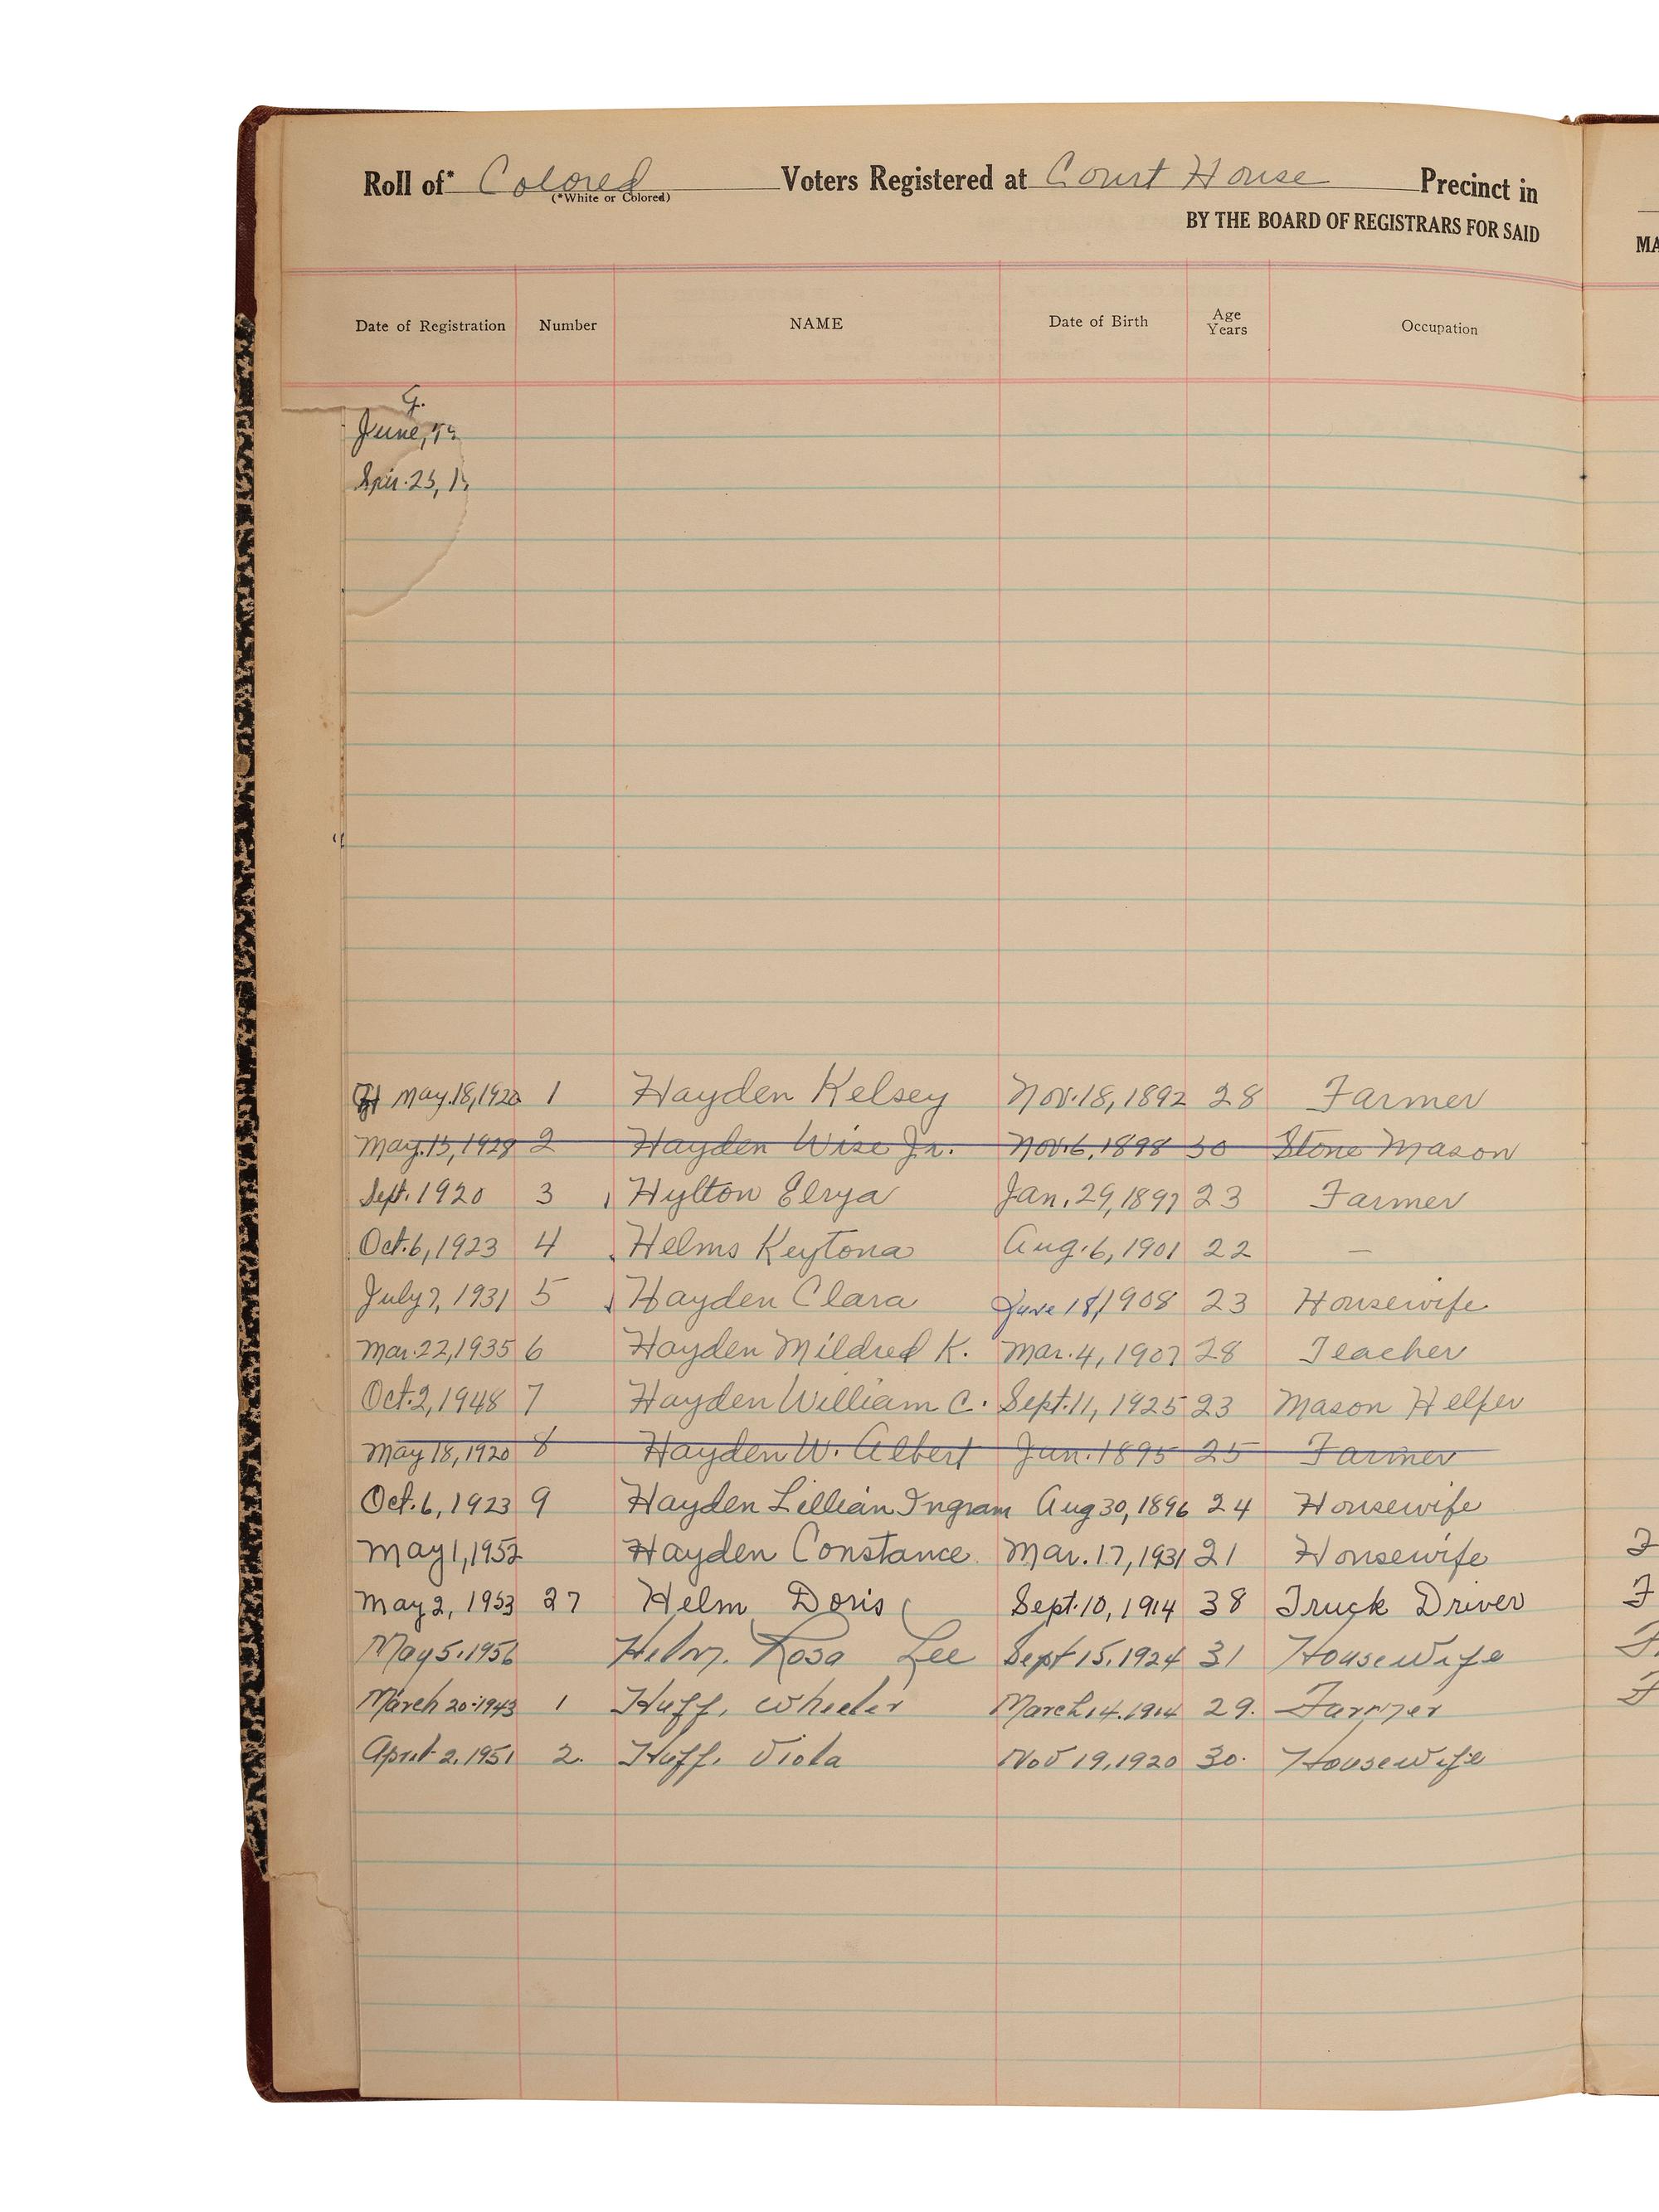 Roll of* Colored Voters Registered at Court House Precinct in
(*White or Colored)
BY THE BOARD OF REGISTRARS FOR SAID MA
Date of Registration Number NAME Date of Birth Age Years Occupation
G.
June,
25, 1
H May.18,1920 1 Hayden Kelsey Nov.18,1892 28 Farmer
May.15,1928 2 Hayden Wise Jr. Nov.6,1898 30 Stone Mason
Sept.1920 3 Hylton Elrya Jan.29,1897 23 Farmer
Oct.6,1923 4 Helms Keytona Aug.6,1901 22 —
July7,1931 5 Hayden Clara June 18,1908 23 Housewife
Mar.22,1935 6 Hayden Mildred K. Mar.4,1907 28 Teacher
Oct.2,1948 7 Hayden William C. Sept.11,1925 23 Mason Helper
May18,1920 8 Hayden W. Albert Jan.1895 25 Farmer
Oct.6,1923 9 Hayden Lillian Ingram Aug30,1896 24 Housewife
May1,1952 Hayden Constance Mar.17,1931 21 Housewife
May2,1953 27 Helm Doris Sept.10,1914 38 Truck Driver
May5.1956 Helm. Rosa Lee Sept 15.1924 31 Housewife
March 20.1943 1 Huff, Wheeler March14.1914 29. Farmer
April 2.1951 2. Huff. Viola Nov 19.1920 30. Housewife